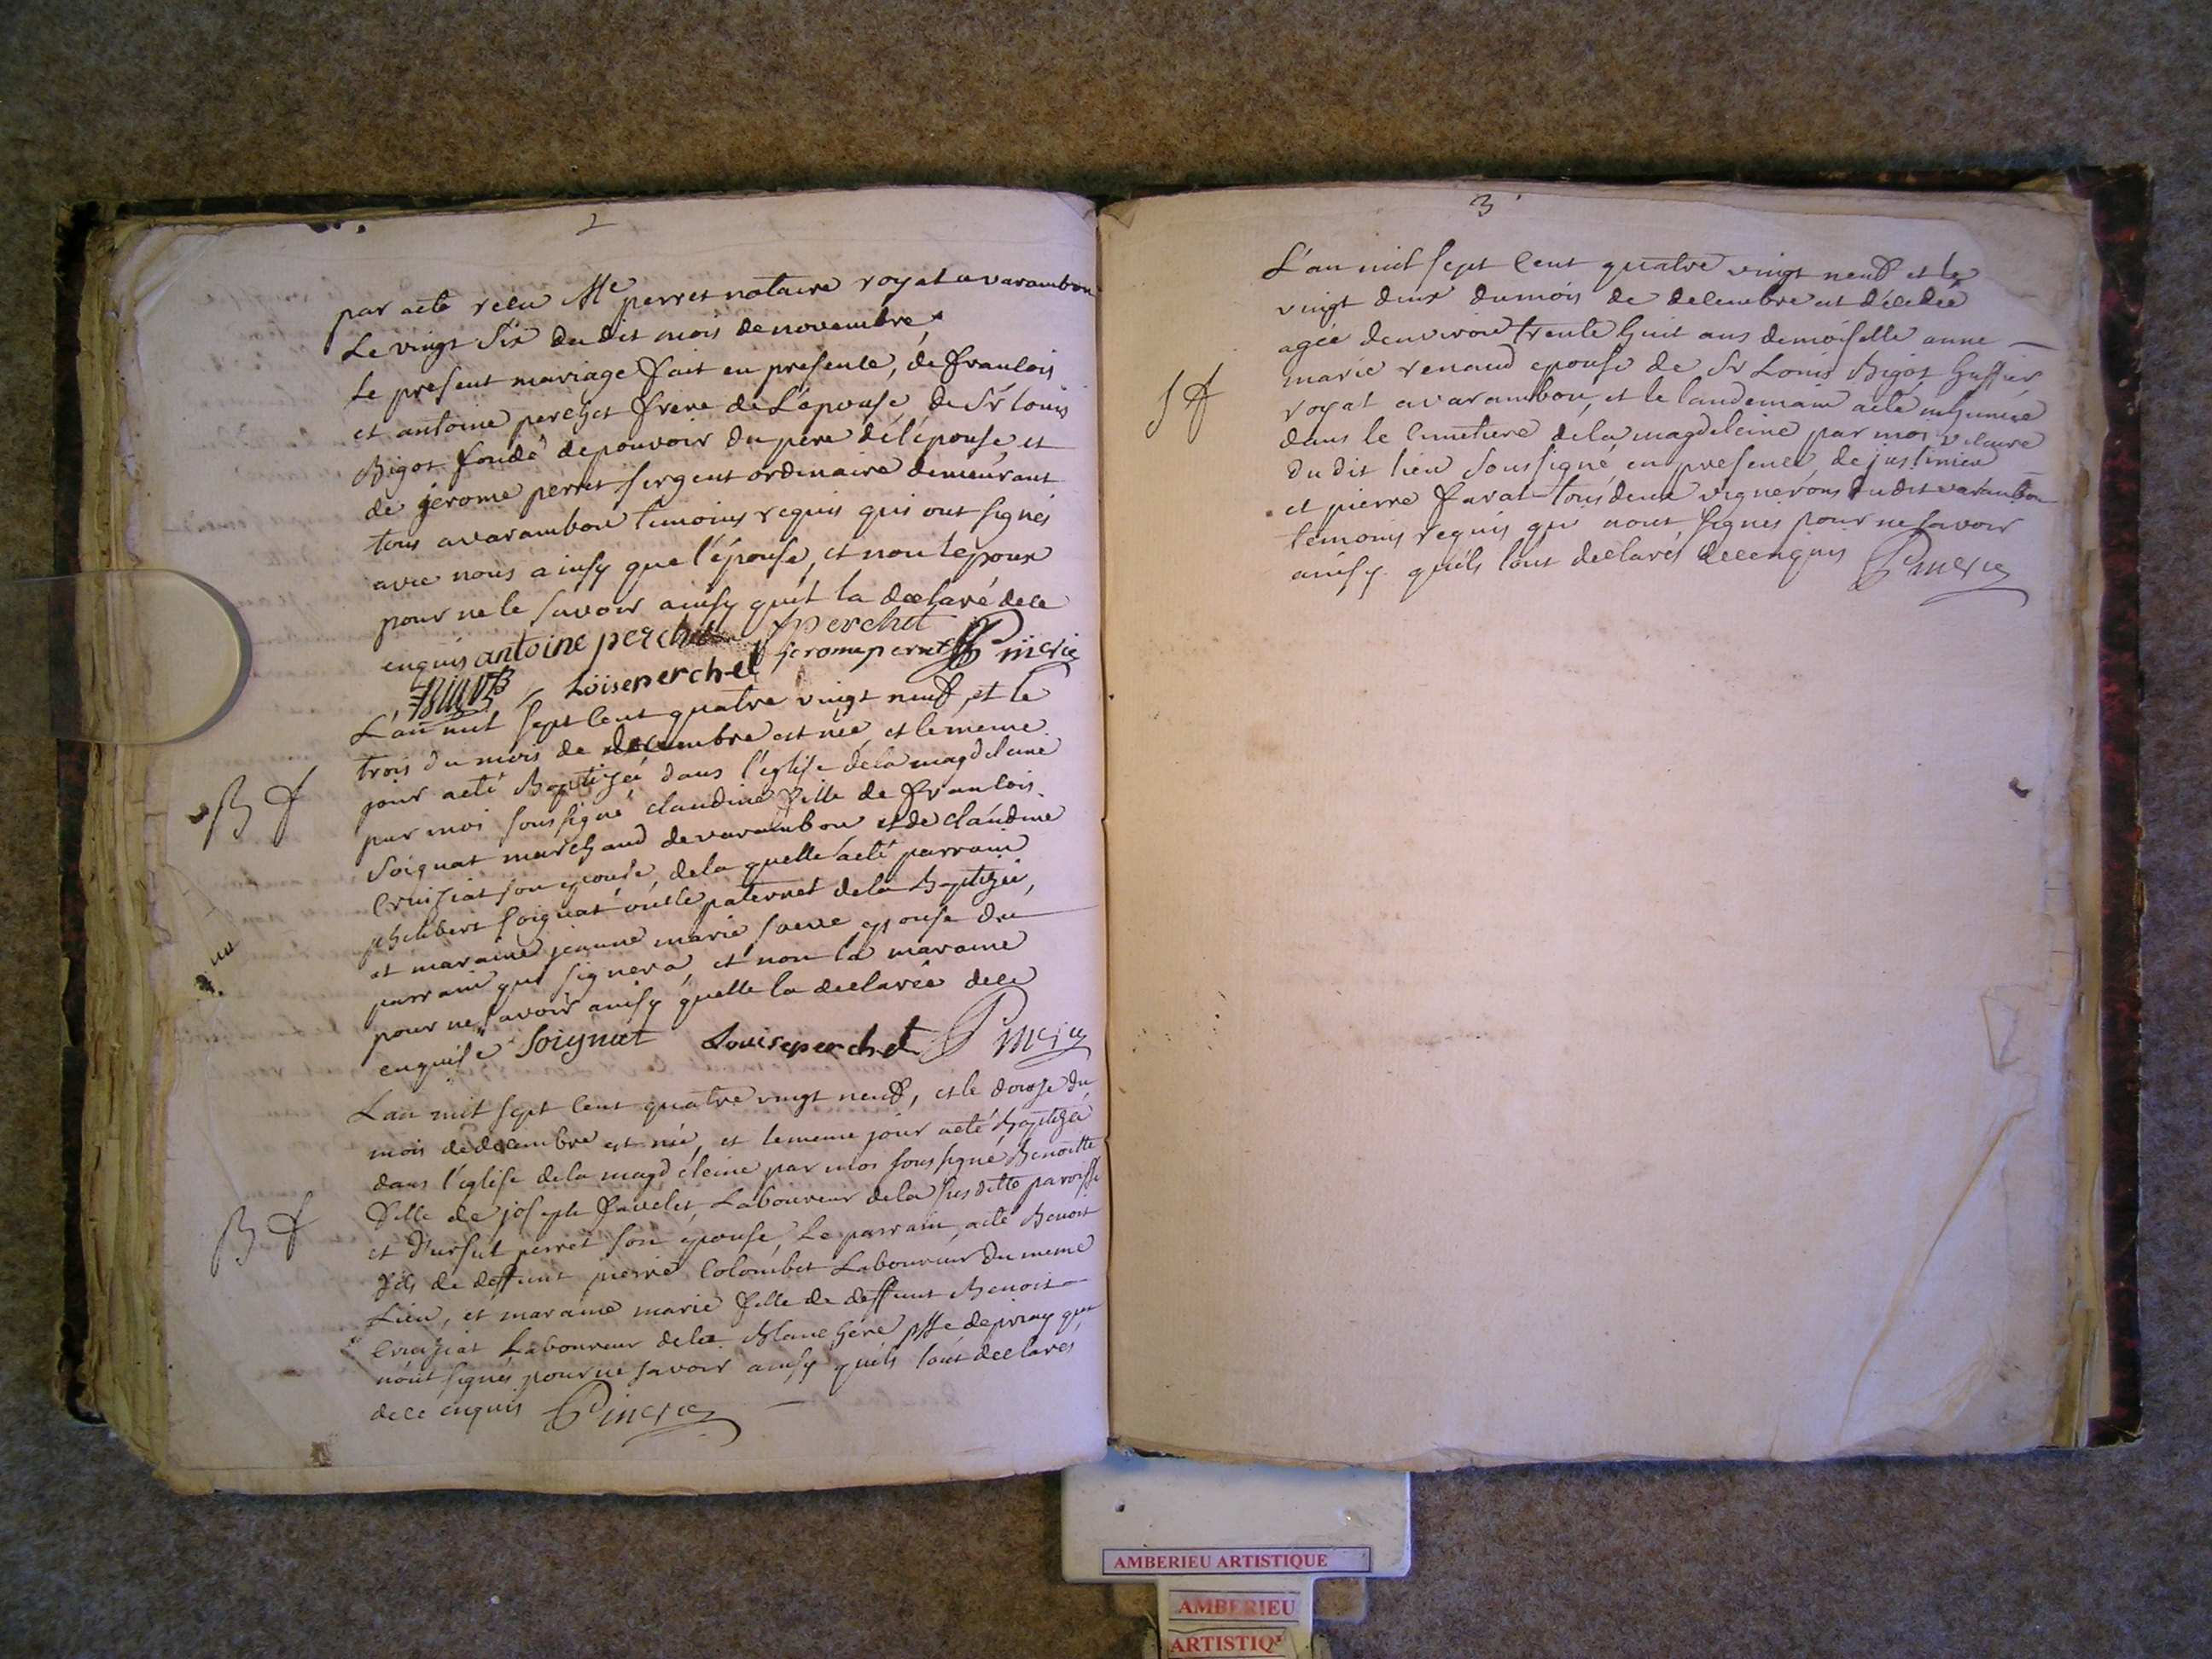 2
par acte recu Me perret notaire royal a varambon
Le vingt Six du dit mois de novembre
Le present mariage fait en presence, de francois
et antoine perchet frere de L'epouse, de Sr louis
Bigot fondé de pouvoir du pere de l'épouse et
de jerome perret sergent ordinaire demeurant
tous a varambon temoins requis qui ont signés
avec nous ainsy que l'épouse, et non lepoux
pour ne le savoir ainsy quil la declaré de ce
enquis antoine perchet fperchet
Bigot Loise perchet jerome perret
L'an mil sept cent quatre vingt neuf, et le
trois du mois de decembre est née, et le meme
jour a eté Baptizéé dans l'église de la magdeleine
par moi soussigné claudine fille de francois
Soignat marchand de varambon et de claudine
Cruiziat son epouse, de la quelle a eté parrain
philibert soignat oncle paternel de la Baptizéé,
et maraine jeanne marie epouse du
parrain qui signera, et non la maraine
pour ne savoir ainsy quelle la declaréé de ce
enquise Soignat Louise perchet
B f
L'an mil sept cent quatre vingt neuf, et le douze du
mois de decembre est née, et le meme jour a eté baptizéé
dans l'église de la magdeleine par moi soussigné Benoitte
fille de joseph favelet, Laboureur de la susditte paroisse
et d'ursul perret son epouse, Le parrain, a eté Benoit
fils de deffunt pierre Colombet Laboureur du meme
Lieu, et maraine marie fille de deffunt Benoit
Cruiziat Laboureur de la Blanchere psse de priay qui
n'ont signés pour ne savoir ainsy quils l'ont declarés
de ce enquis
B f
3
L'an mil sept cent quatre vingt neuf et le
vingt deux du mois de decembre est décédéé
agéé d'environ trente huit ans demoiselle anne
marie renaud epouse de Sr Louis Bigot hussier
royal a varambon, et le landemain a eté inhuméé
dans le cimetiere de la magdeleine par moi vicaire
du dit lieu soussigné en presence, de
et pierre favat tous deux vignerons du dit varambon
temoins requis qui n'ont signés pour ne savoir
ainsy quils l'ont declarés de ce enquis
S f
AMBERIEU ARTISTIQUE
AMBERIEU
ARTISTIQ